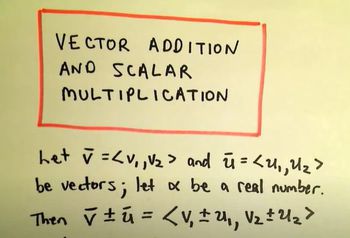 VECTOR ADDITION
AND SCALAR
MULTIPLICATION
Let v̄ = <v₁, v₂> and ū = <u₁, u₂>
be vectors; let α be a real number.
Then v̄ ± ū = <v₁ ± u₁, v₂ ± u₂>